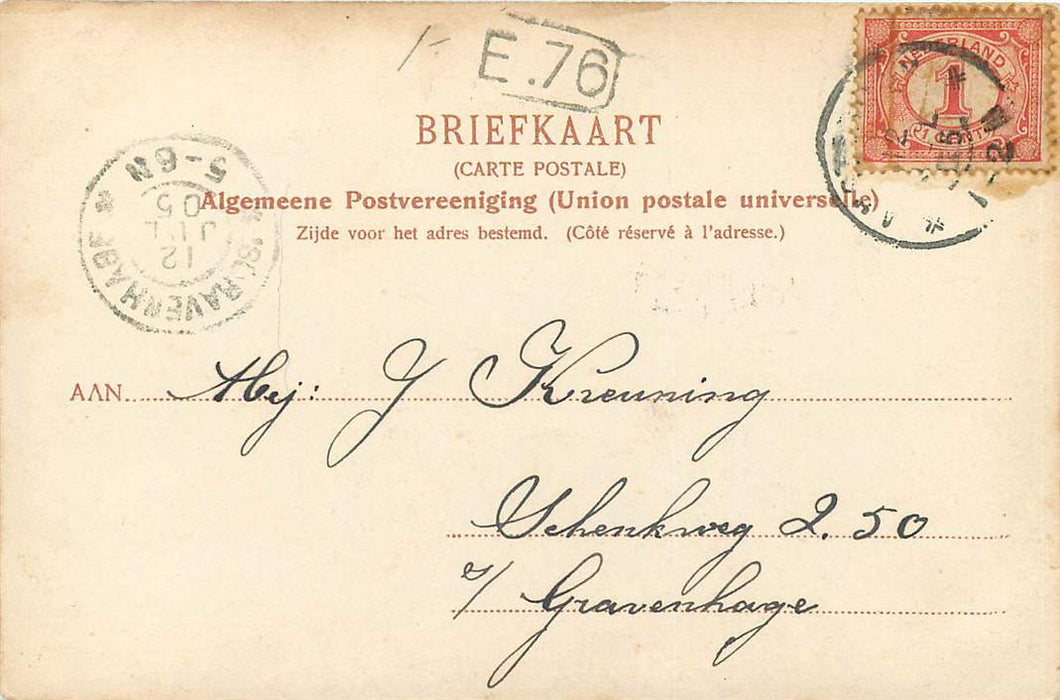 E.76
NEDERLAND
1
BRIEFKAART
(CARTE POSTALE)
Algemeene Postvereeniging (Union postale universelle)
Zijde voor het adres bestemd. (Côté réservé à l'adresse.)
'SGRAVENHAGE
12
JUL
05
5-6N
AAN Mej: J Kreuning
Schenkweg 2.50
s/ Gravenhage